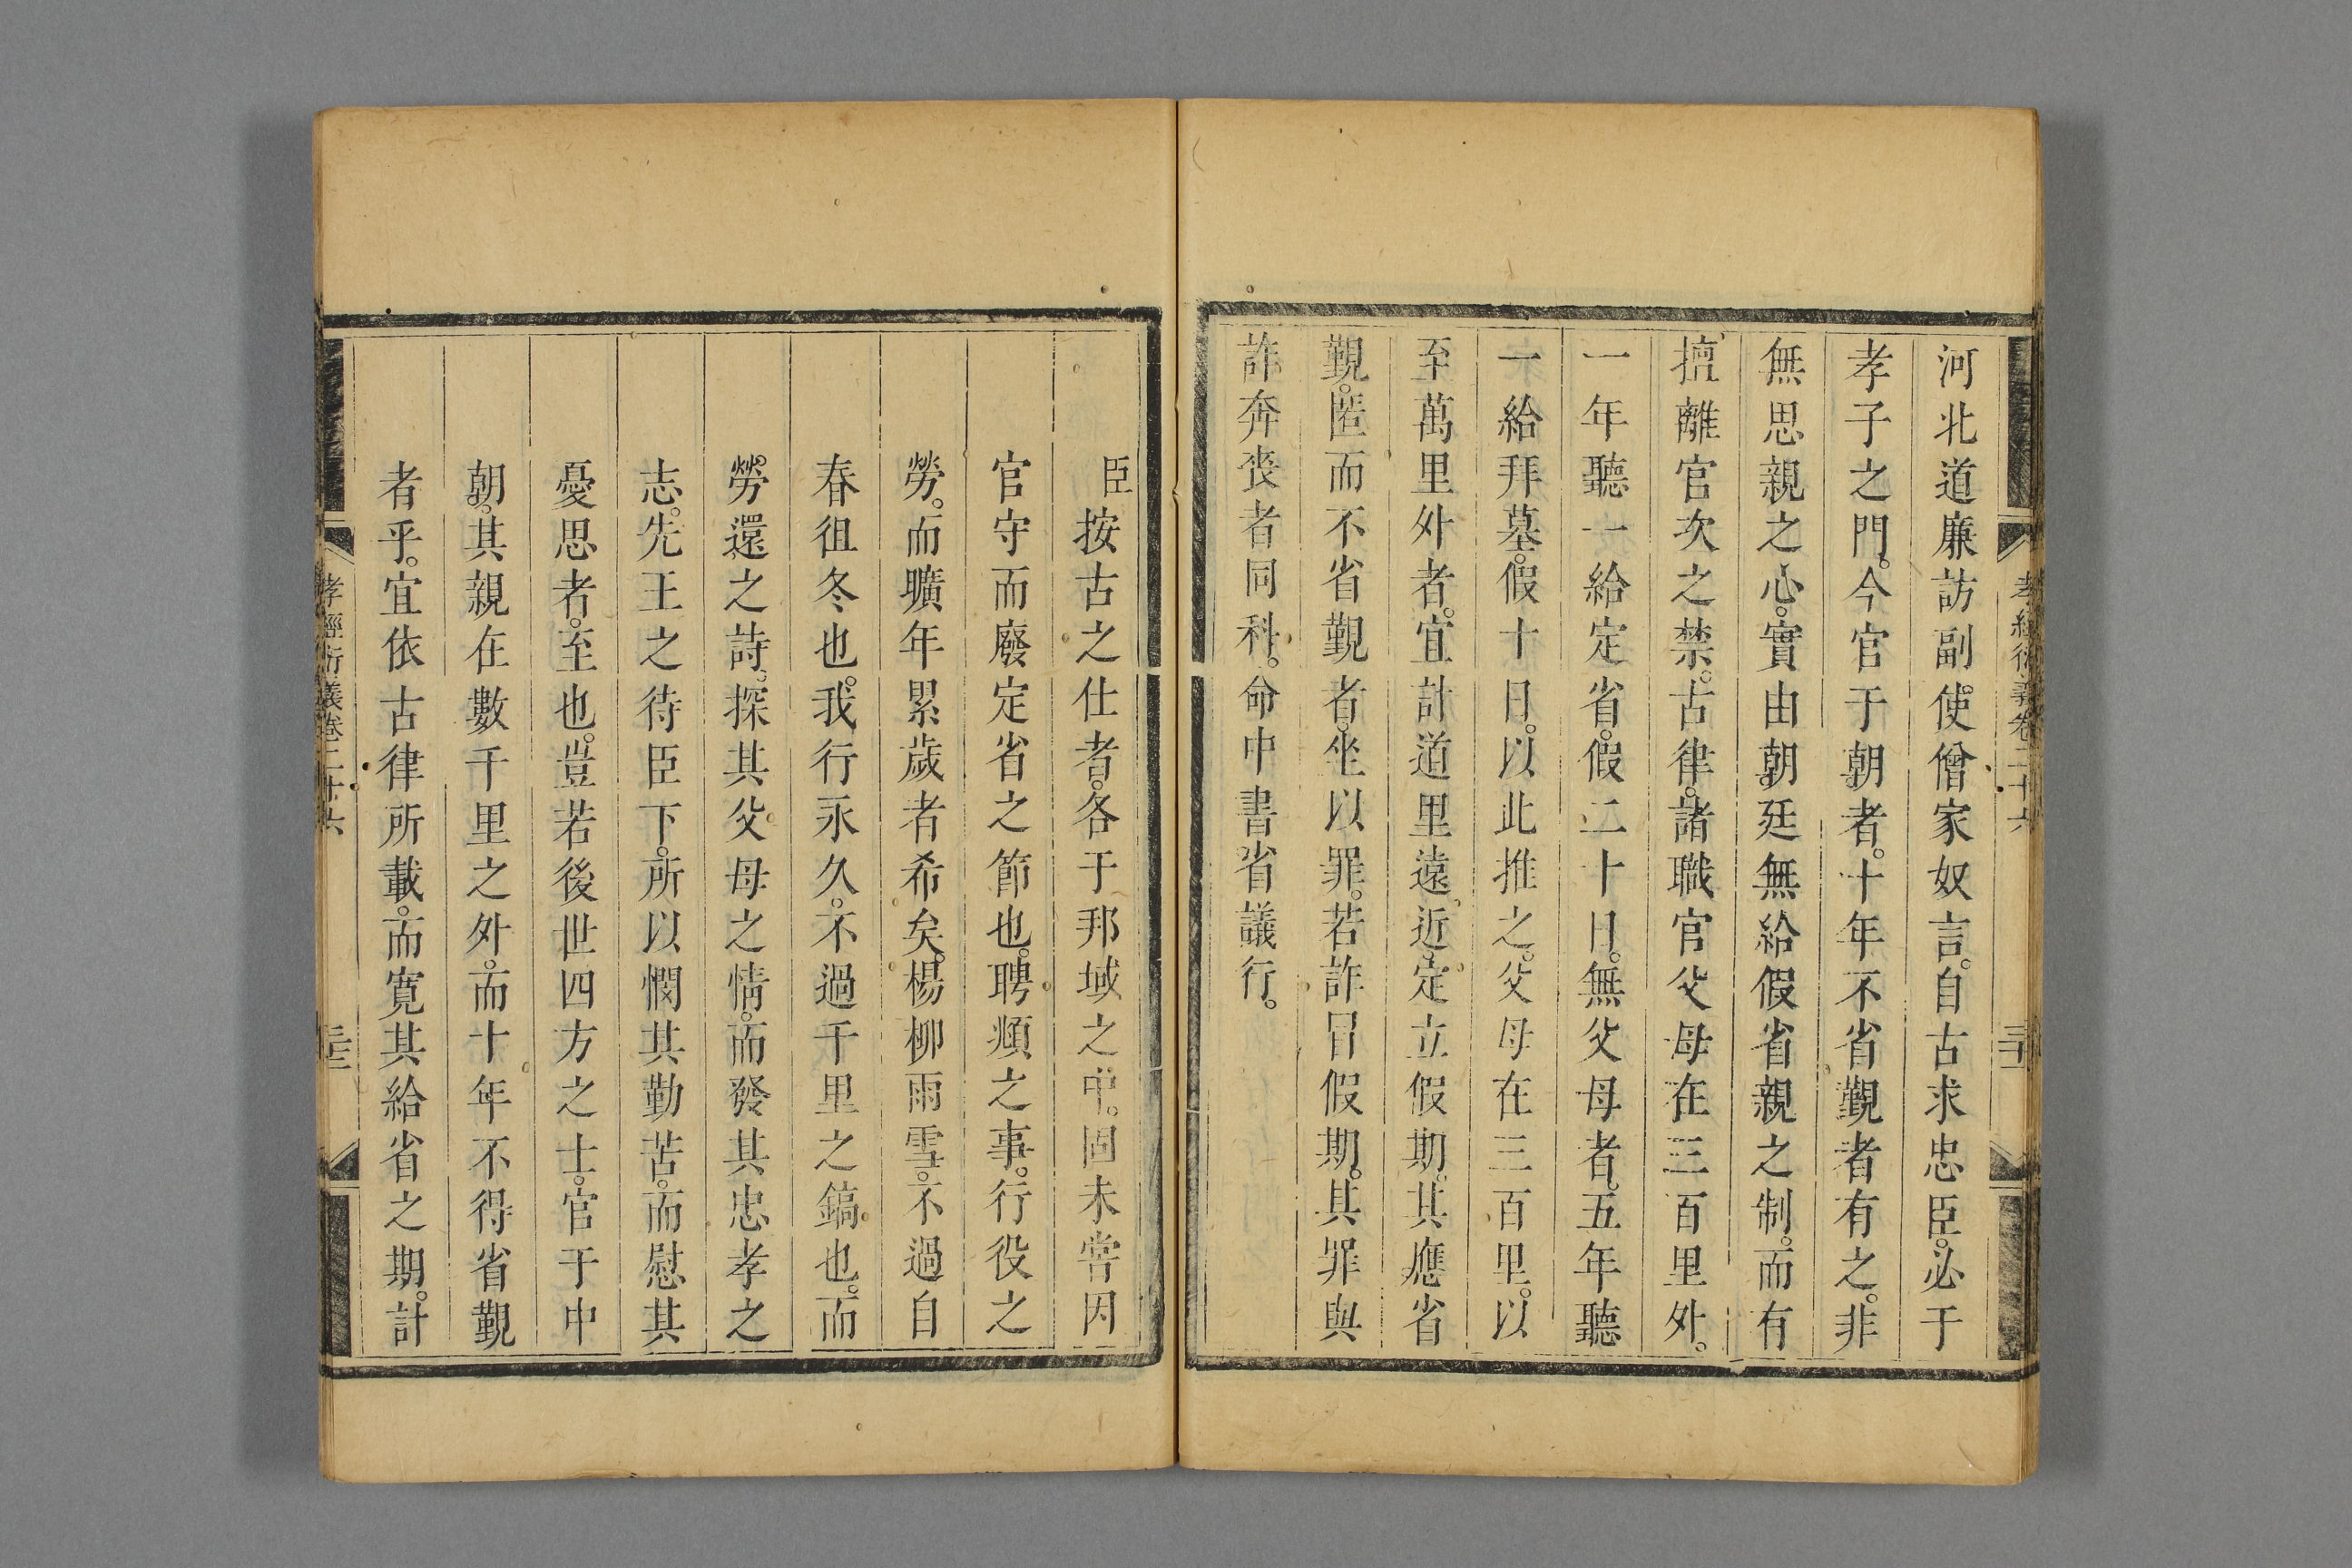 孝經衍義卷二十六
河北道廉訪副使僧家奴言。自古求忠臣。必于
孝子之門。今官于朝者。十年不省覲者有之。非
無思親之心。實由朝廷無給假省親之制。而有
擅離官次之禁。古律。諸職官父母在三百里外。
一年聽一給定省。假二十日。無父母者。五年聽
一給拜墓。假十日。以此推之。父母在三百里。以
至萬里外者。宜計道里遠近。定立假期。其應省
覲。匿而不省覲者。坐以罪。若詐冒假期。其罪與
詐奔喪者同科。命中書省議行。
臣按古之仕者。各于邦域之中。固未嘗因
官守而廢定省之節也。聘頫之事。行役之
勞。而曠年累歲者希矣。楊柳雨雪。不過自
春徂冬也。我行永久。不過千里之鎬也。而
勞還之詩。探其父母之情。而發其忠孝之
志。先王之待臣下。所以憫其勤苦。而慰其
憂思者。至也。豈若後世四方之士。官于中
朝。其親在數千里之外。而十年不得省覲
者乎。宜依古律所載。而寬其給省之期。計
孝經衍義卷二十六